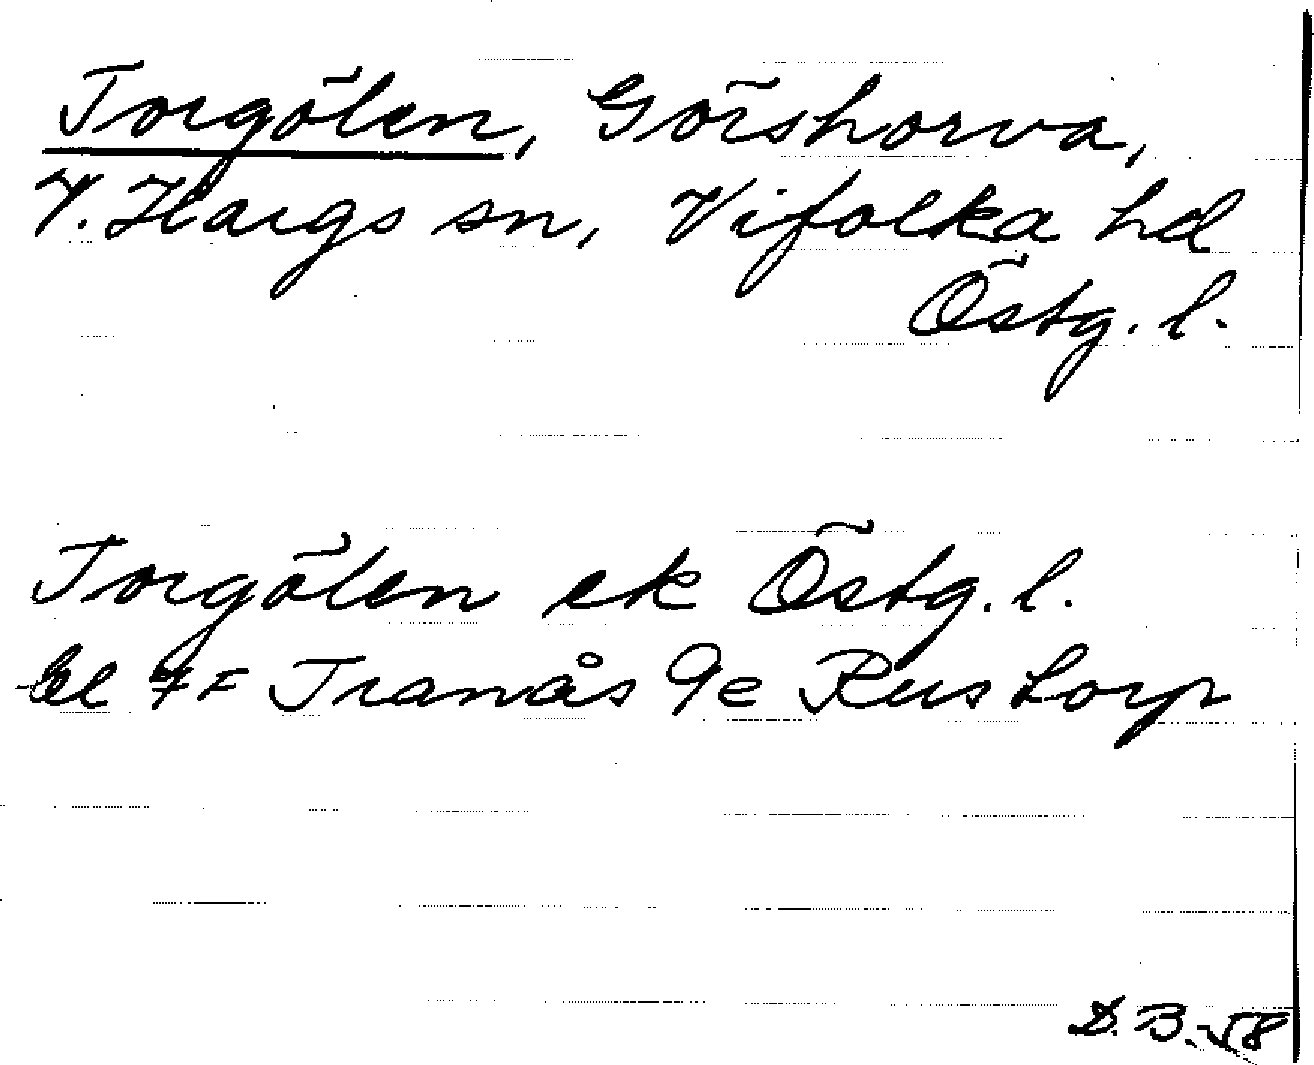 Torgölen, Görshorva,
V. Hargs sn, Vifolka hd
Östg. l.
Torgölen ek Östg. l.
bl 7F Tranås 9e Rustorp
D.B.-58